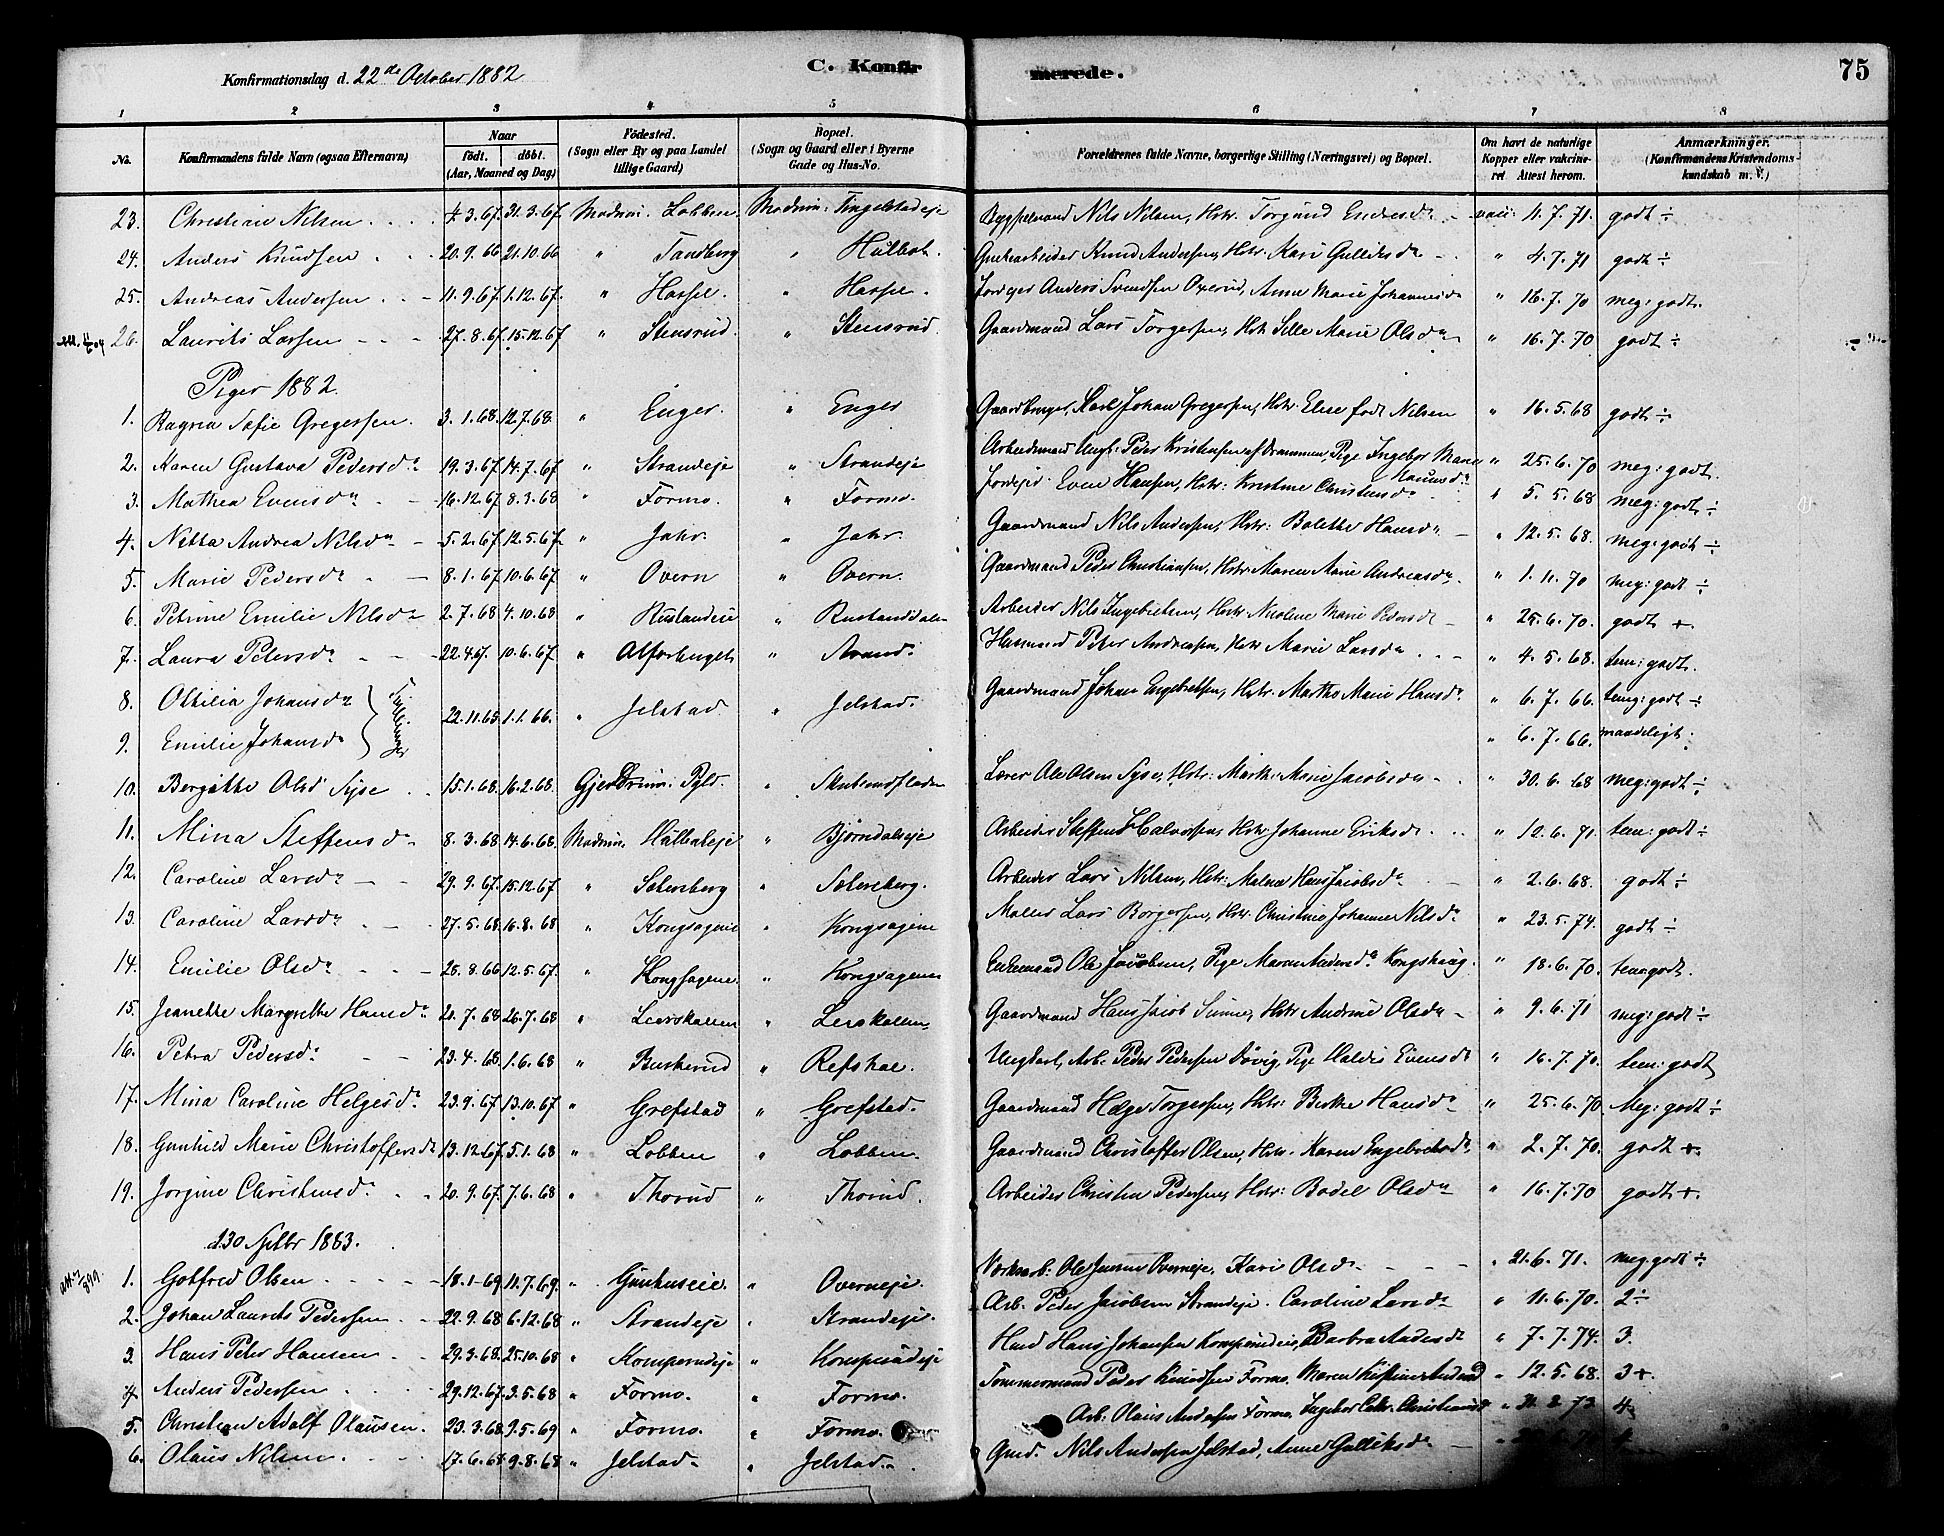 Konfirmationsdag d. 22de October 1882 C. Konfirmerede. 75
1 2 3 4 5 6 7 8
No. Konfirmandens fulde Navn (ogsaa Efternavn) Naar födt. döbt. (Aar, Maaned og Dag) Födested. (Sogn eller By og paa Landet tillige Gaard) Bopæl. (Sogn og Gaard eller i Byerne Gade og Hus-No. Forældrenes fulde Navne, borgerlige Stilling (Næringsvei) og Bopæl. Om havt de naturlige Kopper eller vakcineret Attest herom. Anmærkninger. (Konfirmandens Kristendomskundskab m. V.)
23. Christian Nilsen 4/3.67. 31.3.67. Modum. Lobben. Modum. Tingelstadeje Nils Nilsen, Hstr. Torgund vacc: 11.7.71. godt ÷
24. Anders Knudsen 20.9.66 21.10.66 " Tandberg " Hulbak. Knud Andersen, Hstr. Kari Gulliksdr " 4.7.71 godt ÷
25. Andreas Andersen 11.9.67. 1.12.67. " Hassel. " Hassel. Jordejer Anders Svendsen Oxerud, Anne Marie Johannesdr " 16.7.70 meg: godt.
26. Laurits Larsen 27.8.67. 15.12.67 " Stensrud. " Stensrud. Gaardmand Lars Torgersen, Hstr Sille Marie Olsdr " 16.7.70 godt ÷
Piger 1882.
1. Ragna Sofie Gregersen. 3.1.68. 12.7.68. " Enger. " Enger Gaardbruger, Karl Johan Gregersen, Hstr. Elise født Nilsen " 16.5.68 godt ÷
2. Karen Gustava Pedersdr 19.3.67. 14.7.67. " Strandeje " Strandeje Arbeidsmand Ungk. Peder Kristiansen af Drammen, Pige Ingebor Marie Hansdr " 25.6.70 meg: godt.
3. Mathea Evensdr 16.12.67. 8.3.68 " Formo. " Formo. Jordejer Even Hansen, Hstr: Kristine Christensdr " 5.5.68 meg: godt ÷
4. Netta Andrea Nilsdr 5.2.67. 12.5.67. " Jahr. " Jahr. Gaardmand Nils Andersen, Hstr: Bolette Hansdr " 12.5.68. meg: godt ÷
5. Marie Pedersdr 8.1.67. 10.6.67. " Overn " Overn. Gaardmand Peder Christiansen, Hstr. Maren Marie Andreasdr. " 1.11.70 meg: godt ÷
6. Petrine Emilie Nilsdr 2.7.68. 4.10.68 " Rustandeie " Rustanddalen Arbeider Nils Ingebretsen, Hstr. Nicoline Marie Pedersdr " 25.6.70. godt +
7. Laura Petersdr 22.4.67. 10.6.67 " " Strand. Husmand Peter Andreasen, Hstr Marie Larsdr " 4.5.68. tem: godt.
8. Othilia Johansdr Tvillinger 22.11.65 1.1.66. " Jelstad " Jelstad. Gaardmand Johan Engebretsen, Hstr. Marthe Marie Hansdr. " 6.7.66. tem: godt ÷
9. Emilie Johansdr " 6.7.66. maadeligt.
10. Bergitte Olsd Syse 15.1.68. 16.2.68. Gjerdrum. " Lærer Ole Olsen Syse, Hstr: Marthe Marie Jacobsdr " 30.6.68 meg: godt ÷
11. Mina Steffensdr 8.3.68 14.6.68. Modum. " Bjørndalseje Arbeider Steffen Halvorsen, Hstr Johanne Eriksdr " 12.6.71. tem: godt ÷
12. Caroline Larsdr 29.9.67. 15.12.67 " Solersberg " Solersberg. Arbeider Lars Nilsen, Hstr: Malene Hans Jacobsdr " 2.6.68. godt ÷
13. Caroline Larsdr 27.5.68. 16.8.68 " Kongsagene " Kongsagene Møller Lars Borgersen, Hstr. Christine Johanne Nilsdr " 23.5.74. godt ÷
14. Emilie Olsdr 28.8.66 12.5.67. " Kongsagene. " Kongsagene Enkemand Ole Jacobsen, Pige Maren Andersdr. Kongshaug. " 18.6.70. tem: godt.
15. Jeanette Margrethe Hansdr 21.7.68 26.7.68 " Leerskallen " Lerskallen Gaardmand Hans Jacob Hstr Andrine Olsdr " 9.6.71 meg: godt ÷
16. Petra Pedersdr 23.4.68. 1.6.68 " Buskerud " Refskae. Ungkarl, Arb. Peder Pedersen Døvig, Pige Haldis Evensdr " 16.7.70. tem: godt
17. Mina Caroline Helgesdr 23.9.67. 13.10.67. " Grefstad " Grefstad. Gaardmand Helge Torgersen, Hstr: Berthe Hansdr " 25.6.70. Meg: godt ÷
18. Gunhild Marie Christoffersdr 13.12.67. 5.1.68 " Lobben " Lobben. Gaardmand Christoffer Olsen, Hstr. Karen Engebretsdr. " 2.7.70. godt +
19. Jorgine Christensdr 20.9.67. 7.6.68 " Thorud " Thorud. Arbeider Christen Pedersen, Hstr: Bodel Olsdr " 16.7.70 godt +
d. 30 Septbr 1883.
1. Gotfred Olsen 18.1.69 11.7.69. " Gunhuseie. " Overneje. Ole Overneje, Kari Olsdr " 21.6.71. meg godt ÷
2. Johan Laurits Pedersen 22.9.68 6.12.68 " Strandeje " Strandeje. Arb. Peder Jacobsen Strandeje. Caroline Larsdr " 11.6.70. 2 ÷
3. Hans Peter Hansen 29.3.68. 25.10.68 " Komperudeje " Komperudeje Hans Johansen Barbra Andersdr " 7.7.74. 3.
4. Anders Pedersen 29.12.67. 3.5.68 " Formo. " Formo. Tømmermand Peder Knudsen Formo, Maren " 12.5.68. 3+.
5. Christian Adolf Olausen. 23.3.68. 9.5.69 " Formo. " Formo. Arb: Olaus Andersen Formo, 4
6. Olaus Nilsen 17.6.68. 9.8.68 " Jelstad " Jelstad. Nils Andersen Jelstad, Anne Gulliksdr